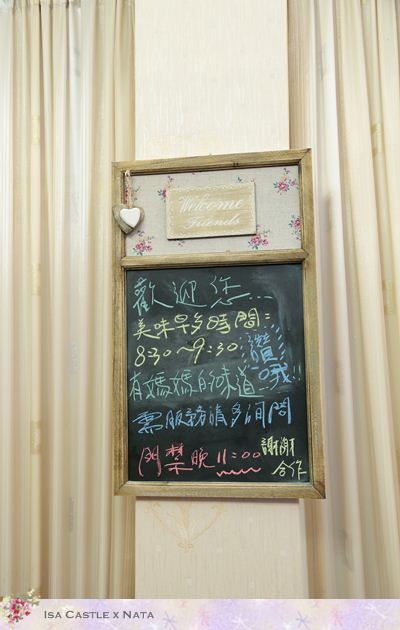 Welcome
Friends
歡迎您...
美味早多時間:
8:30~9:30 讚
有媽媽的味道 哦!!
需服務請多詢問
門禁晚11:00 謝謝
合作
ISA CASTLE X NATA